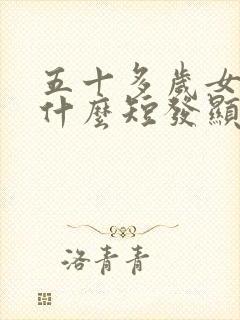 五十多歲女
什麼短發顯
洛青青